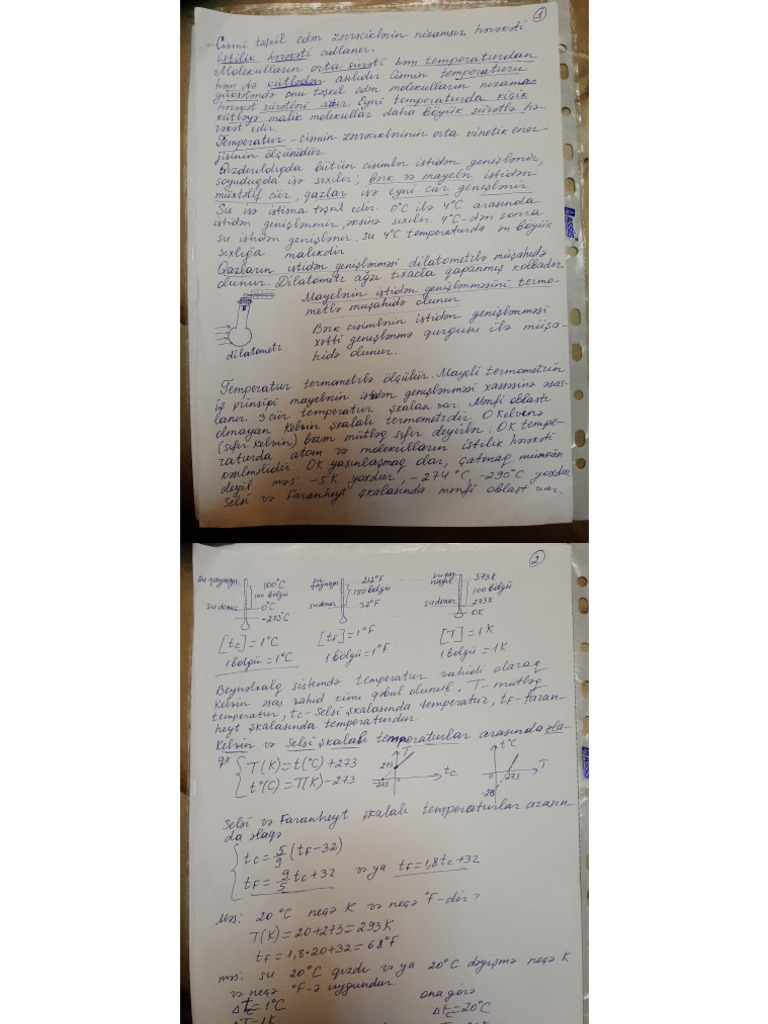 1
Cismi təşkil edən zərrəciklərin nizamsız hərəkəti
istilik hərəkəti adlanır.
Molekulların orta sürəti həm temperaturdan
həm də kütlədən asılıdır. Cismin temperaturu
yüksələndə onu təşkil edən molekulların nizamsız
hərəkət sürətləri artır. Eyni temperaturda kiçik
kütləyə malik molekullar daha böyük sürətlə hə-
rəkət edir.
Temperatur - cismin zərrəciklərinin orta kinetik ener-
jisinin ölçüsüdür.
Qızdırıldıqda bütün cisimlər istidən genişlənir,
soyuduqda isə sıxılır; bərk və mayelər istidən
müxtəlif cür, qazlar isə eyni cür genişlənir
Su isə istisna təşkil edir. 0°C ilə 4°C arasında
istidən genişlənmir, əksinə sıxılır 4°C-dən sonra
su istidən genişlənir. Su 4°C temperaturda ən böyük
sıxlığa malikdir.
Qazların istidən genişlənməsi dilatometrlə müşahidə
olunur. Dilatometr ağzı tıxacla qapanmış kolbadır.
Mayelərin istidən genişlənməsini termo-
metlə müşahidə olunur
Bərk cisimlərin istidən genişlənməsi
xətti genişlənmə qurğusu ilə müşa-
hidə olunur.
dilatometr.
Temperatur termometrlə ölçülür. Mayeli termometrin
iş prinsipi mayelərin istidən genişlənməsi xassəsinə əsas-
lanır. 3 cür temperatur şkalası var. Mənfi oblastı
olmayan Kelvin şkalalı termometrdir. 0 Kelvinə
(sıfır Kelvin) bəzən mütləq sıfır deyirlər. 0K tempe-
raturda atom və molekulların istilik hərəkəti
kəsilməlidir. 0K yaxınlaşmaq olar, çatmaq mümkün
deyil məs: -5K yoxdur, -274°C, -290°C yoxdur
Selsi və Faranheyt şkalasında mənfi oblast var.
BASIS
2
su qaynayır 100°C
100 bölgü
su donur 0°C
-273°C
[tc]=1°C
1 bölgü=1°C
su qaynayır 212°F
180 bölgü
su donur 32°F
[tF]=1°F
1 bölgü=1°F
su qaynayır 373K
100 bölgü
su donur 273K
0K
[T]=1K
1 bölgü=1K
Beynəlxalq sistemdə temperatur vahidi olaraq
Kelvin əsas vahid kimi qəbul olunub. T-mütləq
temperatur, tc-Selsi şkalasında temperatur, tF-faran-
heyt şkalasında temperaturdur.
Kelvin və Selsi şkalalı temperaturlar arasında əla-
qə
T(K)=t(°C)+273
t°(C)=T(K)-273
T
273
-273 0 tc
t°C
0 273 T
-273
Selsi və Faranheyt şkalalı temperaturlar arasın-
da əlaqə
tc=5/9(tF-32)
tF=9/5tc+32 və ya tF=1,8tc+32
Məs: 20°C neçə K və neçə °F-dir?
T(K)=20+273=293K
tF=1,8·20+32=68°F
məs: su 20°C qızdı və ya 20°C dəyişmə neçə K
və neçə °F-ə uyğundur. ona görə
Δtc=1°C Δtc=20°C
ΔT=1K
BASIS